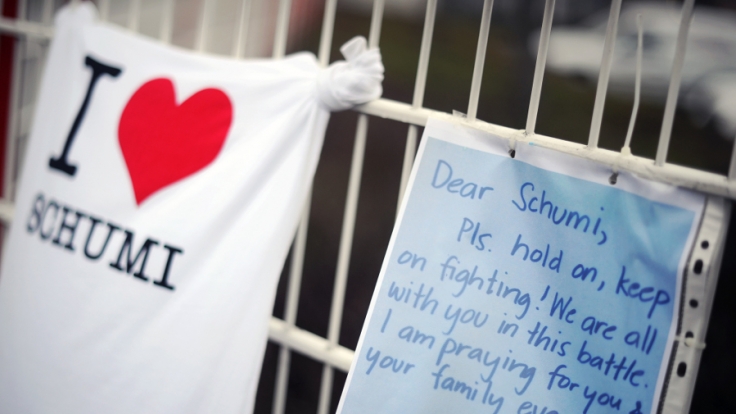 I
SCHUMI
Dear Schumi,
Pls. hold on, keep
on fighting! We are all
with you in this battle.
I am praying for you &
your family